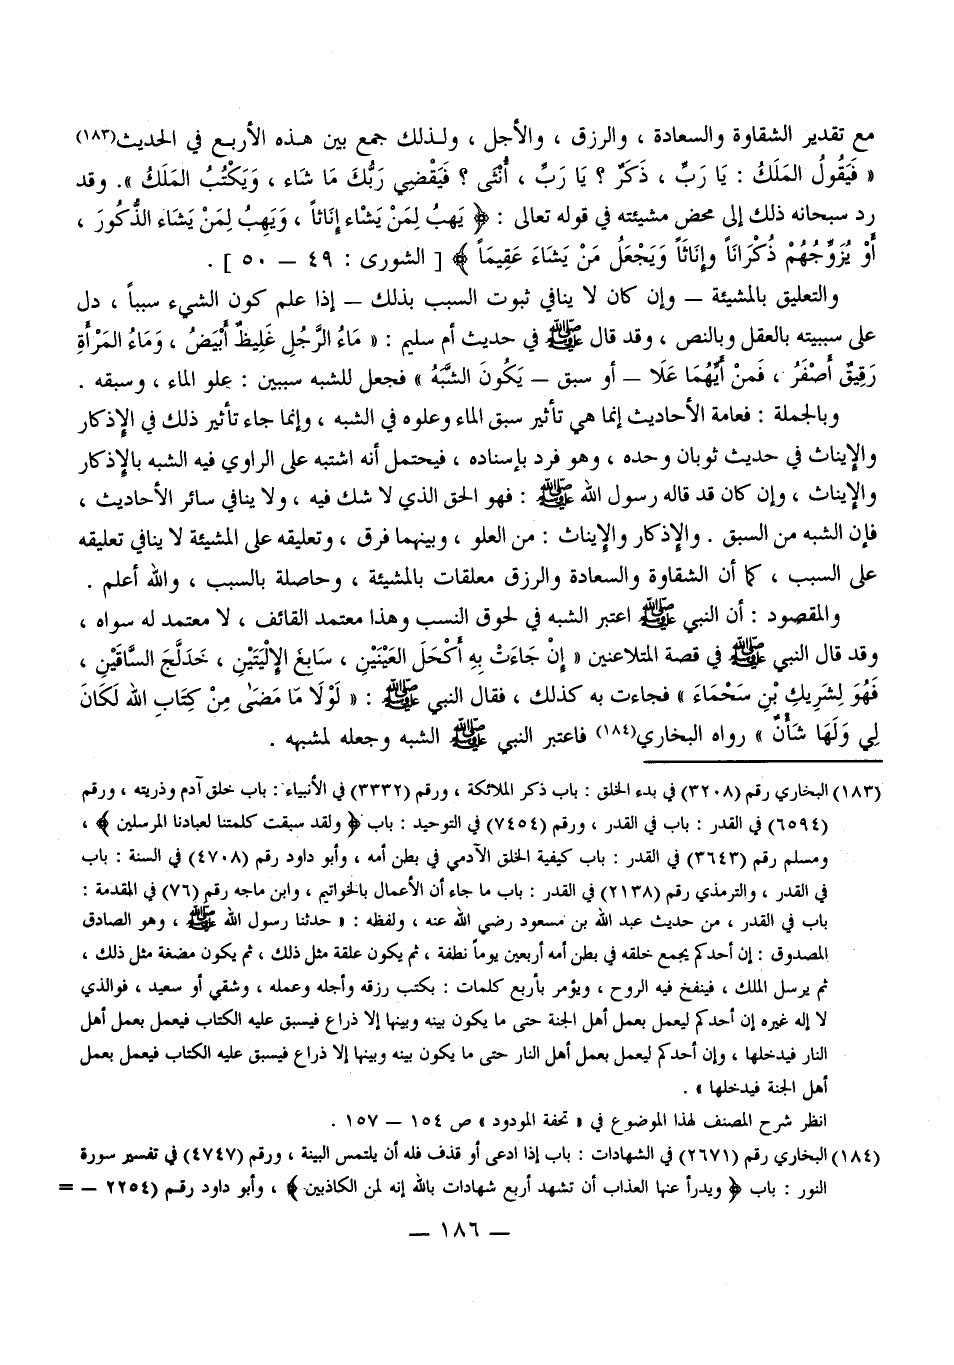 مع تقدير الشقاوة والسعادة ، والرزق ، والأجل ، ولـذلك جمع بين هـذه الأربـع في الحديث(١٨٣)
« فَيَقُولُ المَلَكُ : يَا رَبِّ ، ذَكَرٌ ؟ يَا رَبِّ ، أُنْثَى ؟ فَيَقْضِي رَبُّكَ مَا شَاء ، وَيَكْتُبُ المَلَكُ ». وقد
رد سبحانه ذلك إلى محض مشيئته في قوله تعالى : ﴿ يَهبُ لِمَنْ يَشَاء إنَاثاً ، وَيَهِبُ لِمَنْ يَشَاء الذُّكُورَ ،
أَوْ يُزَوِّجُهُمْ ذُكْرَاناً وإنَاثَاً وَيَجْعَلُ مَنْ يَشَاء عَقِيمَاً ﴾ [ الشورى : ٤٩ — ٥٠ ] .
والتعليق بالمشيئة — وإن كان لا ينافي ثبوت السبب بذلك — إذا علم كون الشيء سبباً ، دل
على سببيته بالعقل وبالنص ، وقد قال ﷺ في حديث أم سليم : « مَاءُ الرَّجُلِ غَلِيظٌ أَبْيَضُ ، وَمَاءُ المَرْأَةِ
رَقِيقٌ أَصْفَرُ ، فَمنْ أَيُّهُمَا عَلَا — أو سبق — يَكُونَ الشَّبَهُ » فجعل للشبه سببين : علو الماء ، وسبقه .
وبالجملة : فعامة الأحاديث إنما هي تأثير سبق الماء وعلوه في الشبه ، وإنما جاء تأثير ذلك في الإذكار
والإيناث في حديث ثوبان وحده ، وهو فرد بإسناده ، فيحتمل أنه اشتبه على الراوي فيه الشبه بالإذكار
والإيناث ، وإن كان قد قاله رسول الله ﷺ : فهو الحق الذي لا شك فيه ، ولا ينافي سائر الأحاديث ،
فإن الشبه من السبق . والإذكار والإيناث : من العلو ، وبينهما فرق ، وتعليقه على المشيئة لا ينافي تعليقه
على السبب ، كما أن الشقاوة والسعادة والرزق معلقات بالمشيئة ، وحاصلة بالسبب ، والله أعلم .
والمقصود : أن النبي ﷺ اعتبر الشبه في لحوق النسب وهذا معتمد القائف ، لا معتمد له سواه ،
وقد قال النبي ﷺ في قصة المتلاعنين « إنْ جَاءَتْ بِهِ أَكْحَلَ العَيْنَيْنِ ، سَابغَ الإِلْيَتَيْنِ ، خَدَلَّجَ السَّاقَيْنِ ،
فَهُوَ لِشَرِيكِ بْنِ سَحْمَاءَ » فجاءت به كذلك ، فقال النبي ﷺ : « لَوْلَا مَا مَضَىٰ مِنْ كِتَابِ اللهِ لَكَانَ
لِي وَلَهَا شَأْنٌ » رواه البخاري(١٨٤) فاعتبر النبي ﷺ الشبه وجعله لمشبهه .
(١٨٣) البخاري رقم (٣٢٠٨) في بدء الخلق : باب ذكر الملائكة ، ورقم (٣٣٣٢) في الأنبياء : باب خلق آدم وذريته ، ورقم
(٦٥٩٤) في القدر : باب في القدر ، ورقم (٧٤٥٤) في التوحيد : باب ﴿ ولقد سبقت كلمتنا لعبادنا المرسلين ﴾ ،
ومسلم رقم (٣٦٤٣) في القدر : باب كيفية الخلق الآدمي في بطن أمه ، وأبو داود رقم (٤٧٠٨) في السنة : باب
في القدر ، والترمذي رقم (٢١٣٨) في القدر : باب ما جاء أن الأعمال بالخواتيم ، وابن ماجه رقم (٧٦) في المقدمة :
باب في القدر ، من حديث عبد الله بن مسعود رضي الله عنه ، ولفظه : « حدثنا رسول الله ﷺ ، وهو الصادق
المصدوق : إن أحدكم يجمع خلقه في بطن أمه أربعين يوماً نطفة ، ثم يكون علقة مثل ذلك ، ثم يكون مضغة مثل ذلك ،
ثم يرسل الملك ، فينفخ فيه الروح ، ويؤمر بأربع كلمات : بكتب رزقه وأجله وعمله ، وشقي أو سعيد ، فوالذي
لا إله غيره إن أحدكم ليعمل بعمل أهل الجنة حتى ما يكون بينه وبينها إلا ذراع فيسبق عليه الكتاب فيعمل بعمل أهل
النار فيدخلها ، وإن أحدكم ليعمل بعمل أهل النار حتى ما يكون بينه وبينها إلا ذراع فيسبق عليه الكتاب فيعمل بعمل
أهل الجنة فيدخلها » .
انظر شرح المصنف لهذا الموضوع في « تحفة المودود » ص ١٥٤ — ١٥٧ .
(١٨٤) البخاري رقم (٢٦٧١) في الشهادات : باب إذا ادعى أو قذف فله أن يلتمس البينة ، ورقم (٤٧٤٧) في تفسير سورة
النور : باب ﴿ ويدرأ عنها العذاب أن تشهد أربع شهادات بالله إنه لمن الكاذبين ﴾ ، وأبو داود رقـم (٢٢٥٤ — =
— ١٨٦ —